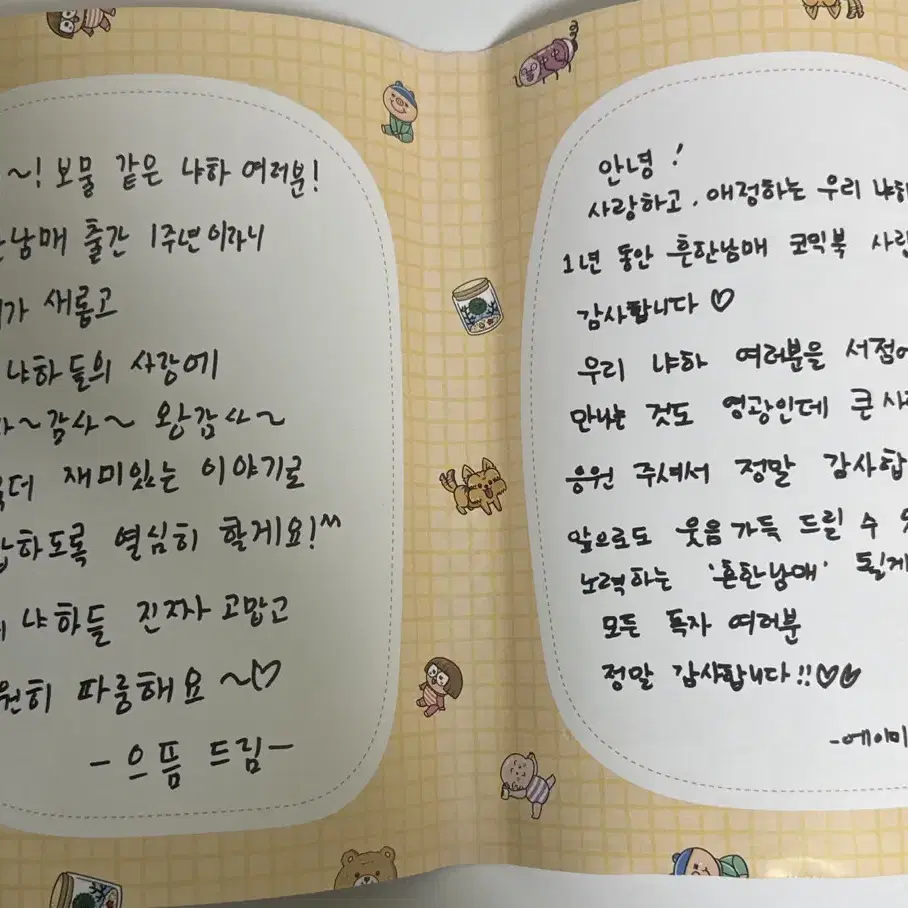 ~! 보물 같은 냐하 여러분!
남매 출간 1주년이라니
가 새롭고
냐하들의 사랑에
~감사~ 왕감사~
재미있는 이야기로
하도록 열심히 할게요!^^
냐하들 진짜 고맙고
파룽해요~♡
-으뜸 드림-
안녕!
사랑하고, 애정하는 우리
1년 동안 흔한남매 코믹북
감사합니다♡
우리 냐하 여러분을
만나는 것도 영광인데 큰
응원 주셔서 정말
앞으로도 웃음 가득 드릴 수
노력하는 '흔한남매' 될게
모든 독자 여러분
정말 감사합니다!!♡♡
-에이미